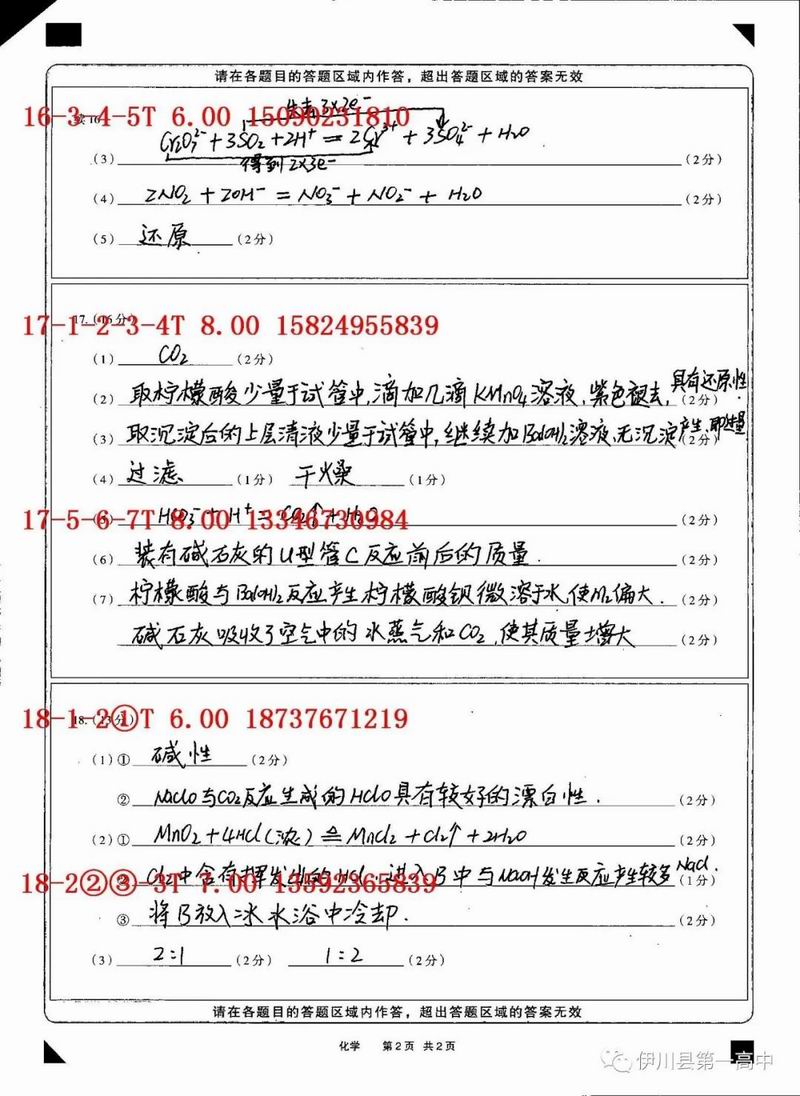 请在各题目的答题区域内作答，超出答题区域的答案无效
16-3-4-5T 6.00 15090231810
失去3×2e⁻
(3) Cr₂O₇²⁻ + 3SO₂ + 2H⁺ = 2Cr³⁺ + 3SO₄²⁻ + H₂O (2分)
得到2×3e⁻
(4) 2NO₂ + 2OH⁻ = NO₃⁻ + NO₂⁻ + H₂O (2分)
(5) 还原 (2分)
17-1-2-3-4T 8.00 15824955839
17.(16分)
(1) CO₂ (2分)
(2) 取柠檬酸少量于试管中,滴加几滴KMnO₄溶液,紫色褪去,具有还原性. (2分)
(3) 取沉淀后的上层清液少量于试管中,继续加Ba(OH)₂溶液,无沉淀产生,即过量 (2分)
(4) 过滤 (1分) 干燥 (1分)
17-5-6-7T 8.00 13346730984
(5) HCO₃⁻ + H⁺ = CO₂↑ + H₂O (2分)
(6) 装有碱石灰的U型管C反应前后的质量. (2分)
(7) 柠檬酸与Ba(OH)₂反应产生柠檬酸钡微溶于水,使m₂偏大. (2分)
碱石灰吸收了空气中的水蒸气和CO₂,使其质量增大 (2分)
18-1-2①T 6.00 18737671219
18.(13分)
(1)① 碱性 (2分)
② NaClO与CO₂反应生成的HClO具有较好的漂白性. (2分)
(2)① MnO₂+4HCl(浓) ≜ MnCl₂+Cl₂↑+2H₂O (2分)
18-2②③-3T 7.00 13592365839
② Cl₂中含有挥发出的HCl,进入B中与NaOH发生反应产生较多NaCl. (1分)
③ 将B放入冰水浴中冷却. (2分)
(3) 2:1 (2分) 1:2 (2分)
请在各题目的答题区域内作答，超出答题区域的答案无效
化学 第2页 共2页
伊川县第一高中